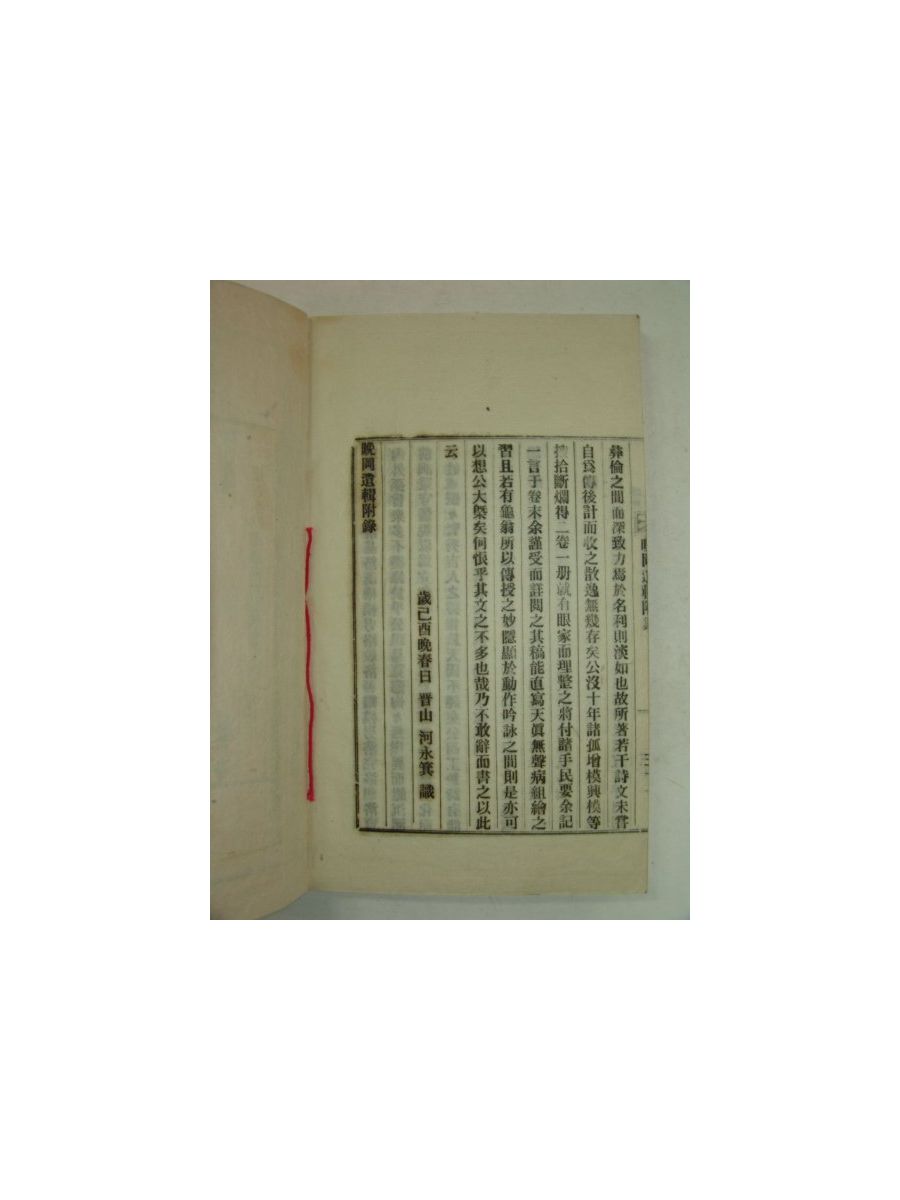 彝倫之間而深致力焉於名利則淡如也故所著若干詩文未嘗
自爲傳後計而收之散逸無幾存矣公沒十年諸孤增模興模等
拾斷爛得二卷一册就有眼家而理整之將付諸手民要余記
一言于卷末余謹受而詳閱之其稿能直寫天眞無聲病組繪之
習且若有龜翁所以傳授之妙隱顯於動作吟詠之間則是亦可
以想公大槩矣何恨乎其文之不多也哉乃不敢辭而書之以此
云
歲己酉晩春日 晋山 河永箕 識
晩岡遺輯附錄